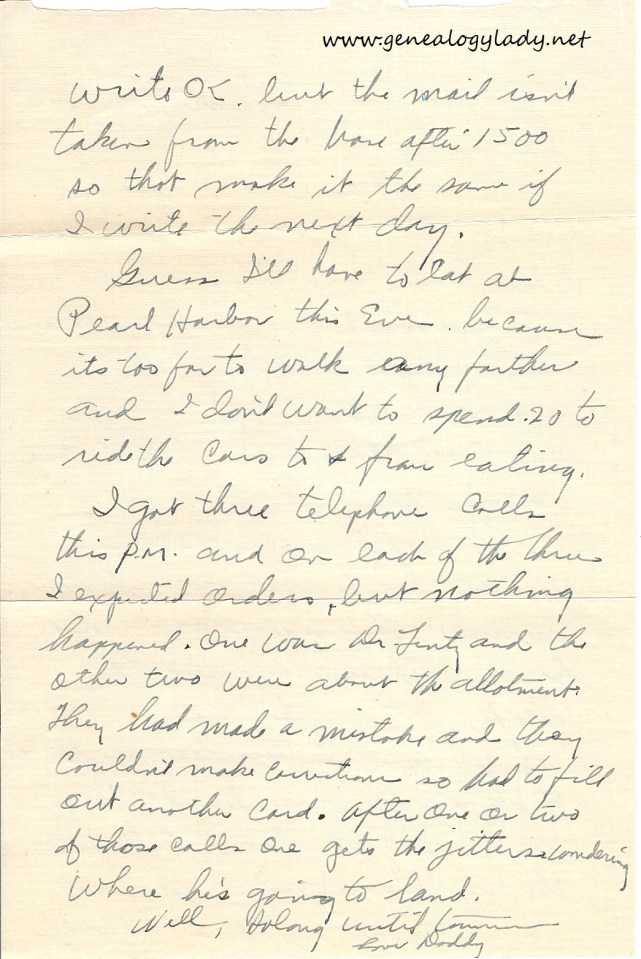 www.genealogylady.net
write OK. but the mail isn't
taken from the base after 1500
so that make it the same if
I write the next day.
Guess I'll have to eat at
Pearl Harbor this Eve. because
its too far to walk any farther
and I don't want to spend .20 to
ride the cars to & from eating.
I got three telephone calls
this p.m. and on each of the three
I expected orders, but nothing
happened. One was Dr and the
other two were about the allotment.
They had made a mistake and they
couldn't make corrections so had to fill
out another card. After one or two
of those calls one gets the jitters wondering
where he's going to land.
Well, so long until
Love Daddy